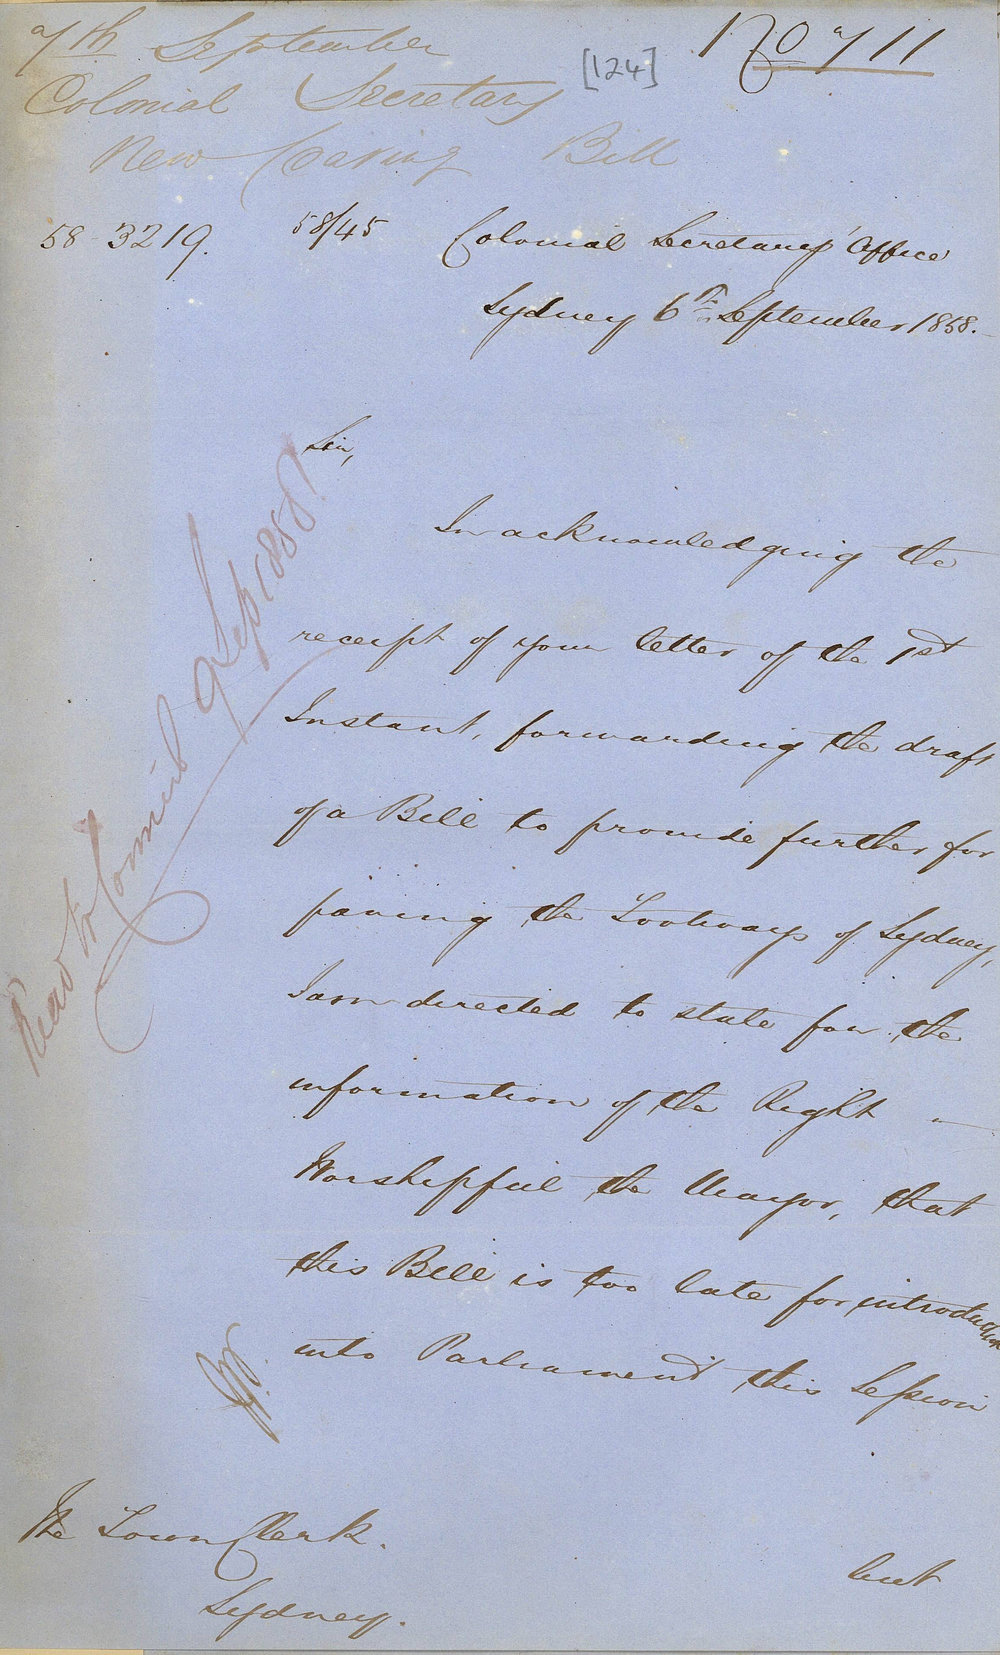 7th September
[124]
No 711
Colonial Secretary
New Paving Bill
58-3219.
58/45
Colonial Secretary's Office
Sydney 6th September 1858.
Sir,
In acknowledging the
receipt of your letter of the 1st
Instant, forwarding the draft
of a Bill to provide further for
paving the Footways of Sydney,
I am directed to state for the
information of the Right
Worshipful the Mayor, that
this Bill is too late for introduction
into Parliament this Session
Read to Council 9 Sep 1858
The Town Clerk.
Sydney.
but